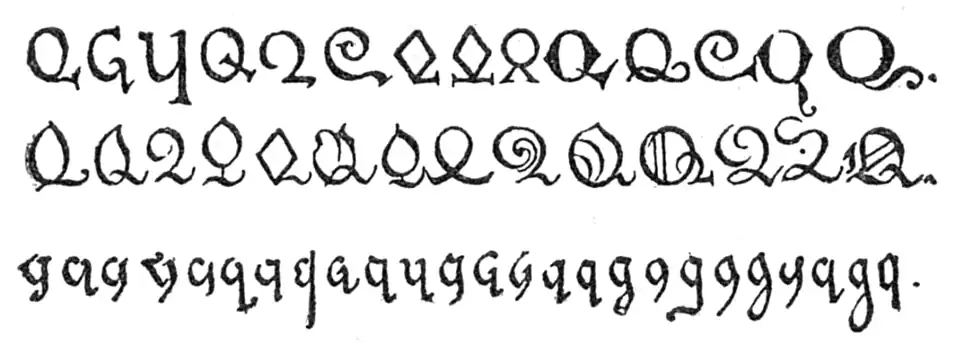 Q Q Q Q Q Q Q Q Q Q Q Q Q Q.
Q Q Q Q Q Q Q Q Q Q Q Q Q Q.
q q q q q q q q q q q q q q q q q q q q q q q q q.